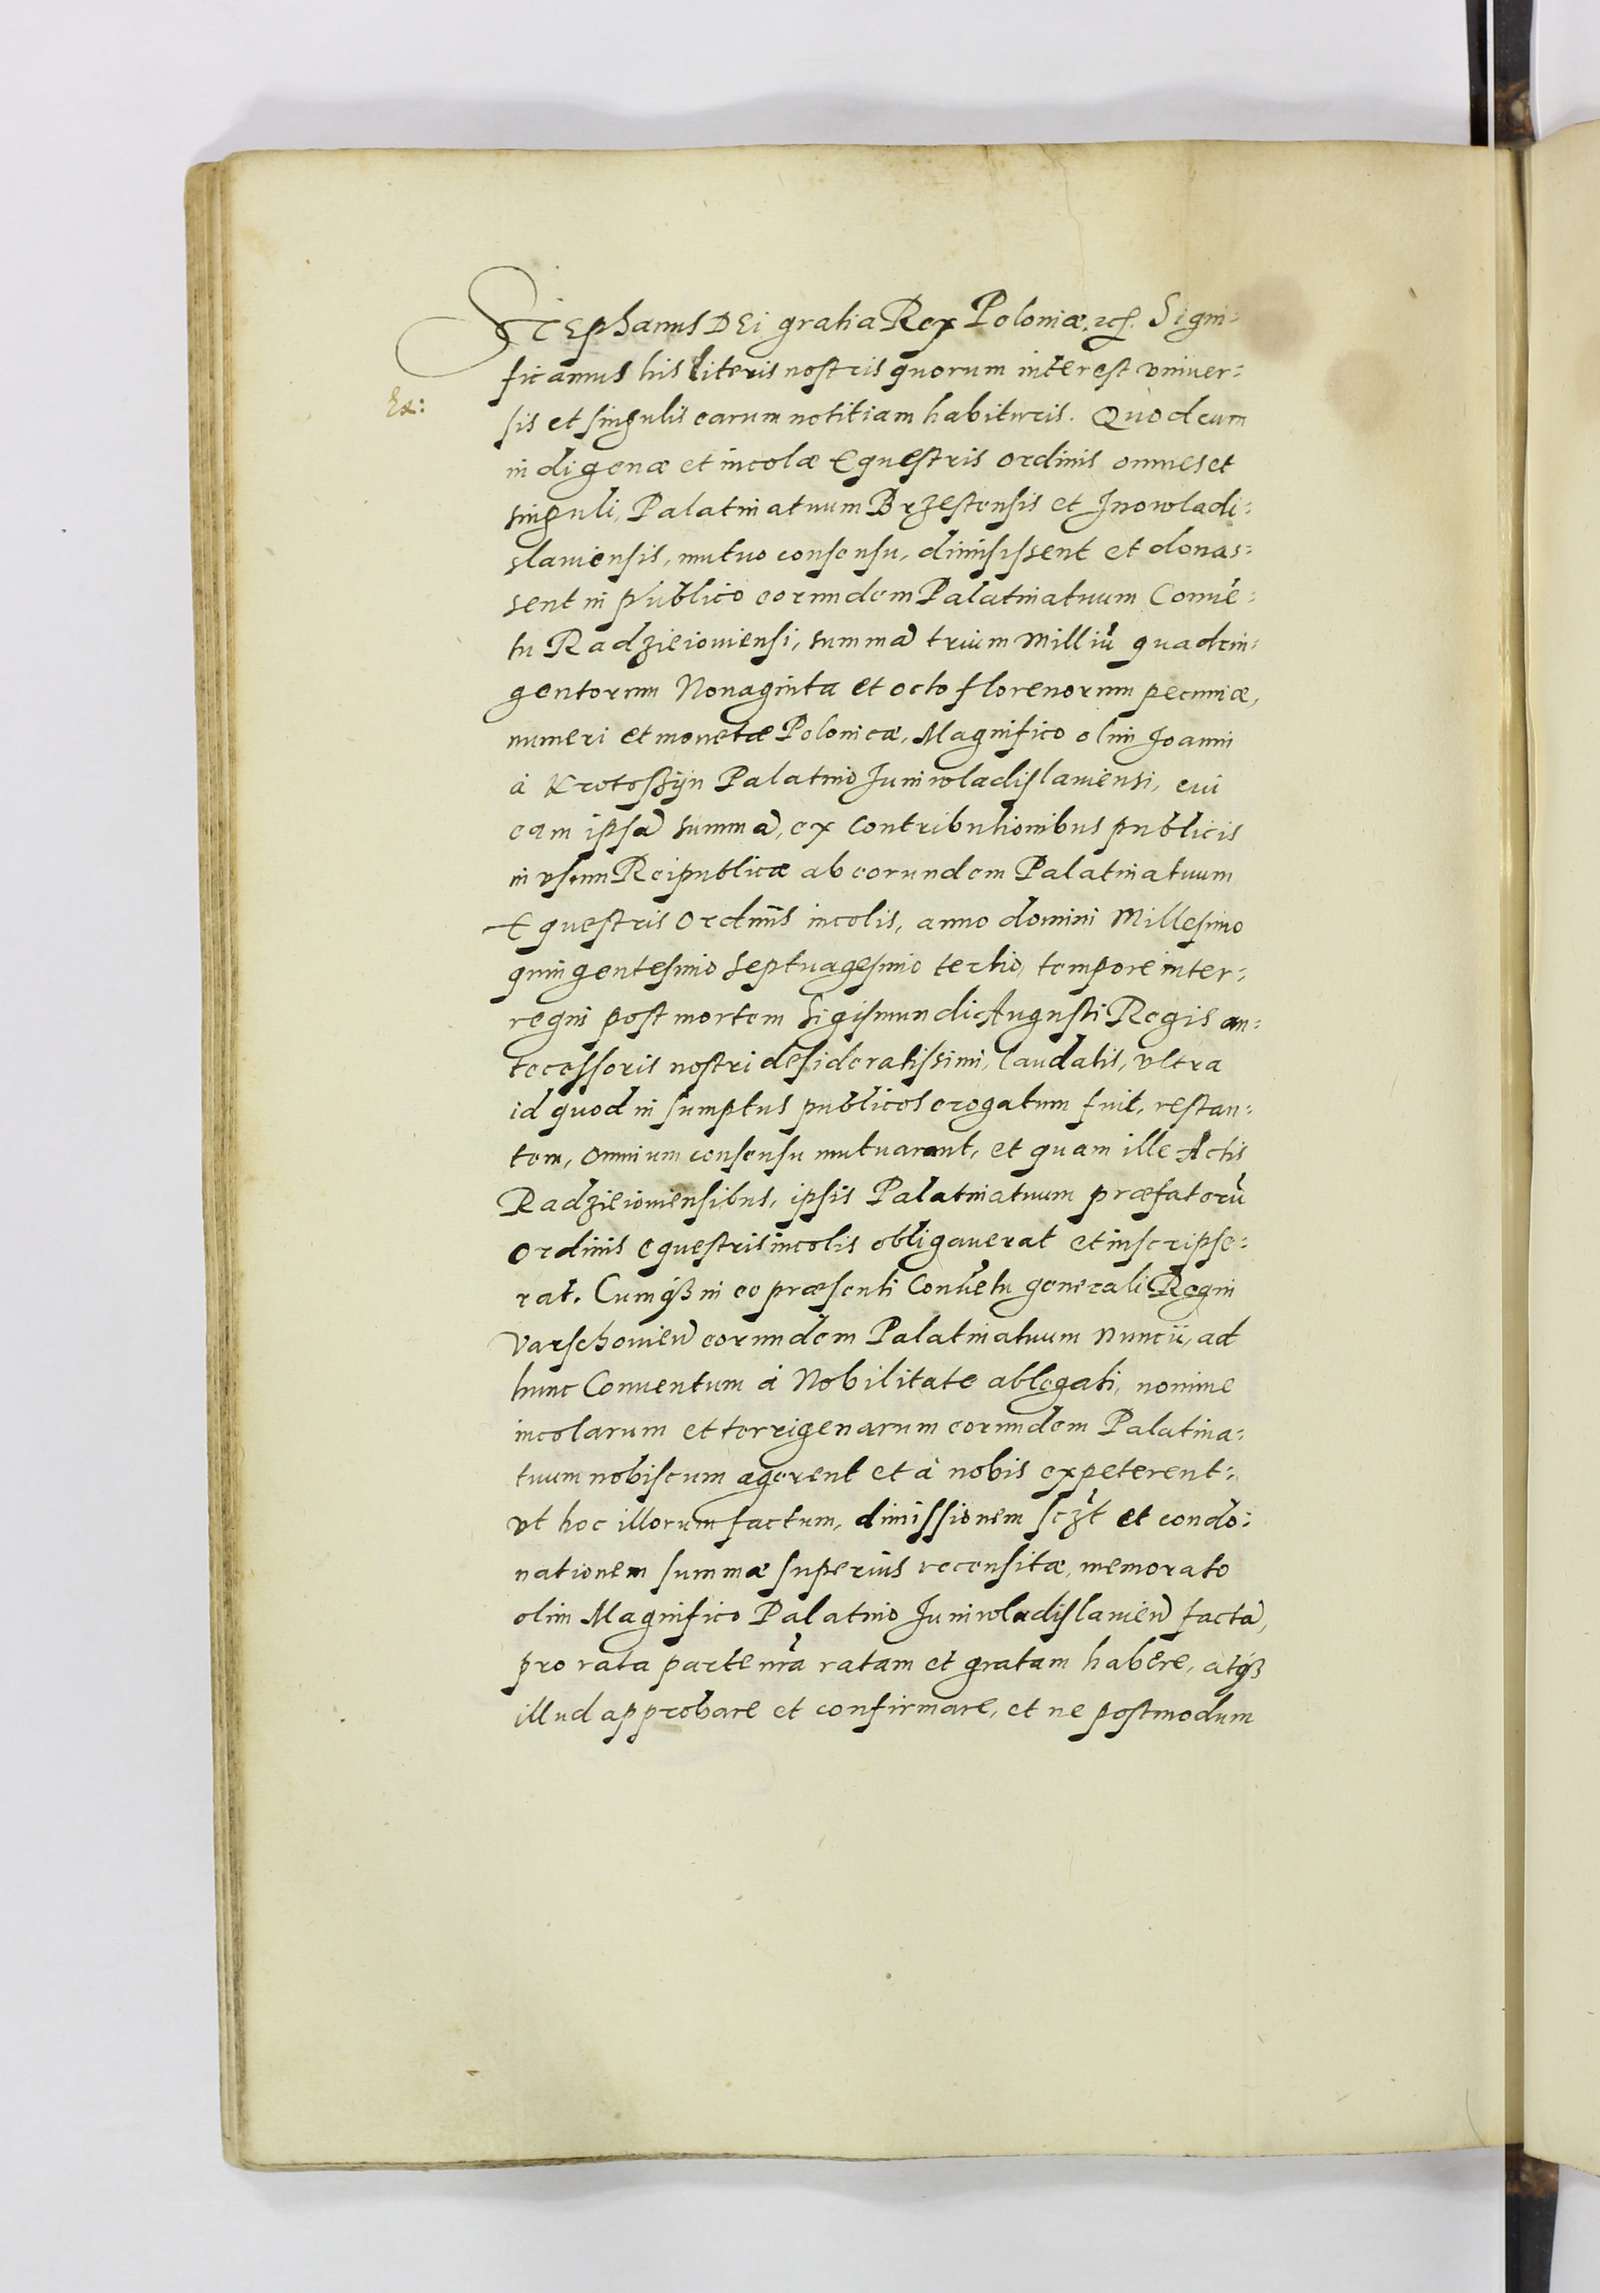 Stephanus DEi gratia Rex Poloniæ, etc. Signi-
ficamus his literis nostris quorum interest vniuer-
Ex:
sis et singulis earum notitiam habituris. Quod cum
indigenæ et incolæ Equestris ordinis omnes et
singuli, Palatinatuum Brzestensis et Jnowladi-
slauiensis, mutuo consensu, dimisissent et donas-
sent in publico eorundem Palatinatuum Conuē-
tu Radzieiouiensi, summā trium Milliū quadrin-
gentorum Nonaginta et octo florenorum pecuniæ,
numeri et monetæ Polonicæ, Magnifico olim Joanni
à Krotoßÿn Palatino Juniwladislauiensi, cui
eam ipsā summā, ex contributionibus publicis
in vsum Reipublicæ ab eorundem Palatinatuum
Equestris Ordinis incolis, anno domini Millesimo
quingentesimo septuagesimo tertio, tempore inter-
regni post mortem Sigismundi Augusti Regis an-
tecessoris nostri desideratissimi, laudatis, vltra
id quod in sumptus publicos erogatum fuit, restan-
tem, omnium consensu mutuarant, et quam ille Actis
Radzieiouiensibus, ipsis Palatinatuum præfatorū
ordinis equestris incolis obligauerat et inscripse-
rat. Cumqȝ in eo præsenti Conuētu generali Regni
Varschouien̄ eorundem Palatinatuum nuncii, ad
hunc Conuentum à Nobilitate ablegati, nomine
incolarum et terrigenarum eorundem Palatina-
tuum nobiscum agerent et à nobis expeterent:
vt hoc illorum factum, dimissionem sczt et condo-
nationem summæ superius recensitæ, memorato
olim Magnifico Palatino Juniwladislauien̄ factā,
pro rata parte nr̄a ratam et gratam habere, atqȝ
illud approbare et confirmare, et ne postmodum